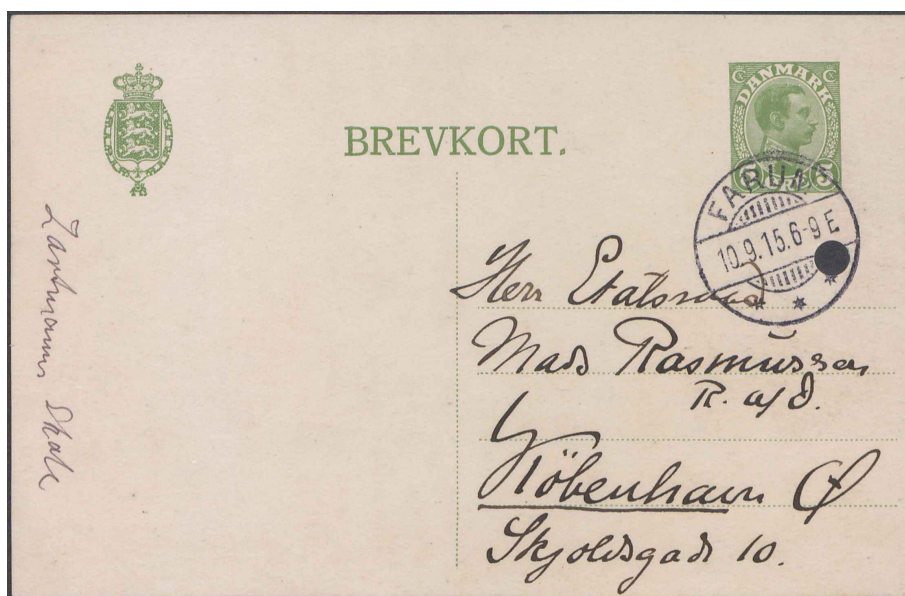 BREVKORT.
DANMARK
5 ØRE 5
FARUM
10.9.15.6-9 E
Herr Etatsraad
Mads Rasmussen
R. af D.
København Ø
Skjoldsgade 10.
Zartmanns Skole